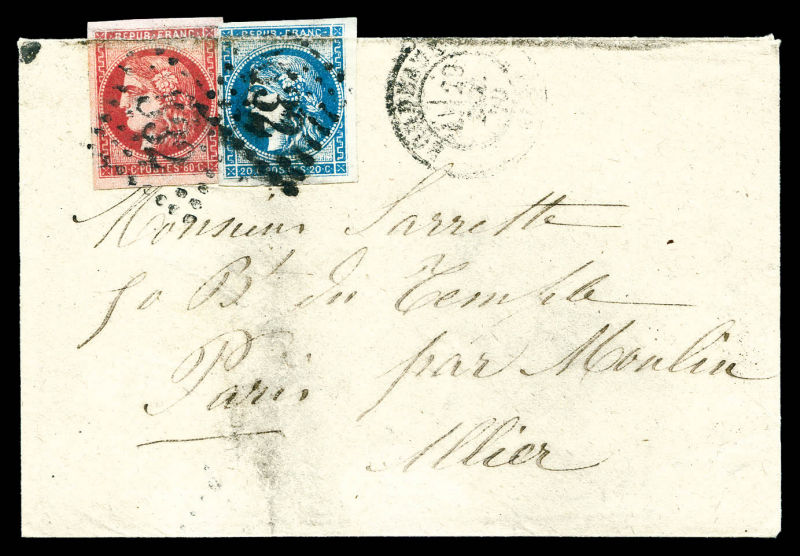 REPUB. FRANC.
REPUB. FRANC.
532
532
C. POSTES 80 C.
20 C. POSTES 20 C.
Monsieur Sarrette
50 Bt du Temple
Paris par Moulin
Allier